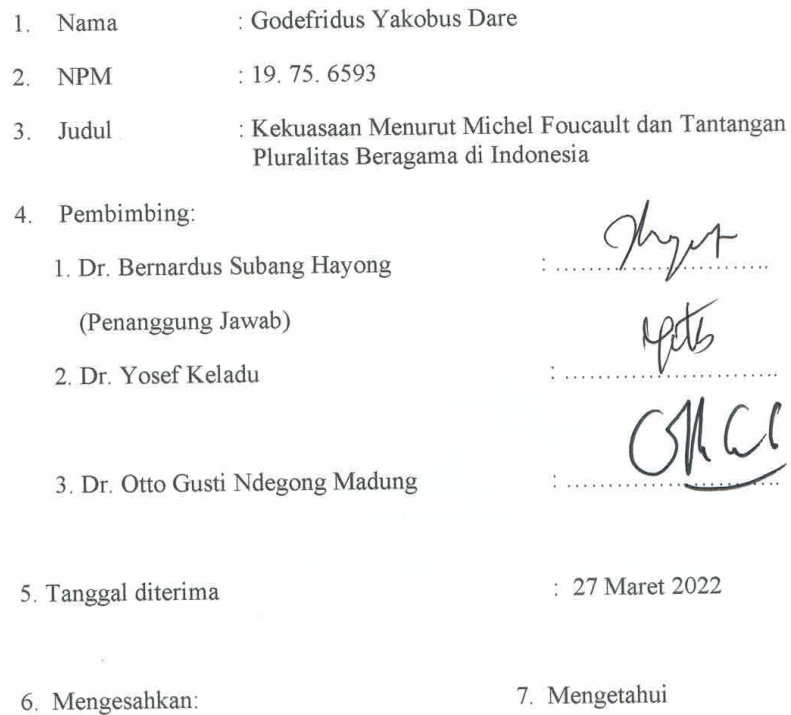 1. Nama : Godefridus Yakobus Dare
2. NPM : 19. 75. 6593
3. Judul : Kekuasaan Menurut Michel Foucault dan Tantangan
Pluralitas Beragama di Indonesia
4. Pembimbing:
1. Dr. Bernardus Subang Hayong : ..........................
(Penanggung Jawab)
2. Dr. Yosef Keladu : ..........................
3. Dr. Otto Gusti Ndegong Madung : ..........................
5. Tanggal diterima : 27 Maret 2022
6. Mengesahkan: 7. Mengetahui